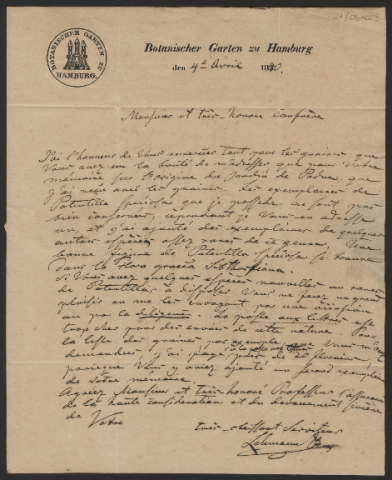 BOTANISCHER GARTEN ZU HAMBURG.
Botanischer Garten zu Hamburg
den 4t Avril 1840.
Monsieur et très honoré Confrère
J'ai l'honneur de Vous remercier tant pour les graines que
Vous avez eu la bonté de m'adresser que pour Votre
memoire sur l'origine du Jardin de Padue, que
j'ai reçu avec les graines. Les exemplaires de
Potentilla speciosa que je possède, ne sont pas
bien conservés, cependant je Vous en adresse
un, et j'ai ajouté des exemplaires de quelques
autres espèces assez rares de ce genre. Une
bonne figure de Potentilla speciosa se trouve
dans la Flora graeca Sibthorpiana.
Si Vous avez quelques espèces nouvelles ou rares
de Potentilla à disposer, Vous me ferez un grand
plaisir en me les envoyant par une occasion
ou par la diligence. La poste aux lettres est
trop cher pour des envois de cette nature. Pour
la liste des graines par exemple que Vous
demandez j'ai payé de florins,
parceque Vous y aviez ajouté un second exemplaire
de votre mémoire.
Agréez Monsieur et très honoré Professeur l'assurance
de la haute considération et du devouement sincère
de Votre
très obeissant Serviteur
Lehmann